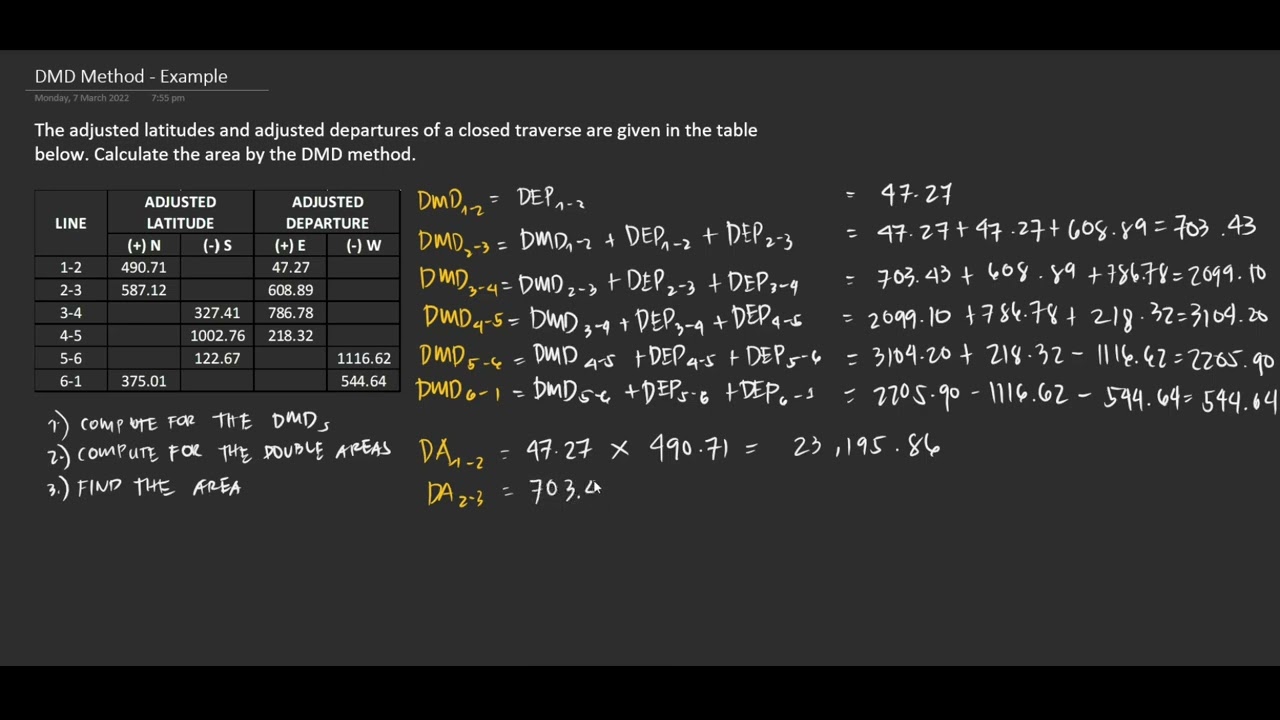 DMD Method - Example
Monday, 7 March 2022 7:55 pm
The adjusted latitudes and adjusted departures of a closed traverse are given in the table
below. Calculate the area by the DMD method.
LINE ADJUSTED LATITUDE ADJUSTED DEPARTURE
(+) N (-) S (+) E (-) W
1-2 490.71 47.27
2-3 587.12 608.89
3-4 327.41 786.78
4-5 1002.76 218.32
5-6 122.67 1116.62
6-1 375.01 544.64
1.) COMPUTE FOR THE DMDs
2.) COMPUTE FOR THE DOUBLE AREAS
3.) FIND THE AREA
DMD1-2 = DEP1-2 = 47.27
DMD2-3 = DMD1-2 + DEP1-2 + DEP2-3 = 47.27 + 47.27 + 608.89 = 703.43
DMD3-4 = DMD2-3 + DEP2-3 + DEP3-4 = 703.43 + 608.89 + 786.78 = 2099.10
DMD4-5 = DMD3-4 + DEP3-4 + DEP4-5 = 2099.10 + 786.78 + 218.32 = 3104.20
DMD5-6 = DMD4-5 + DEP4-5 + DEP5-6 = 3104.20 + 218.32 - 1116.62 = 2205.90
DMD6-1 = DMD5-6 + DEP5-6 + DEP6-1 = 2205.90 - 1116.62 - 544.64 = 544.64
DA1-2 = 47.27 × 490.71 = 23,195.86
DA2-3 = 703.4